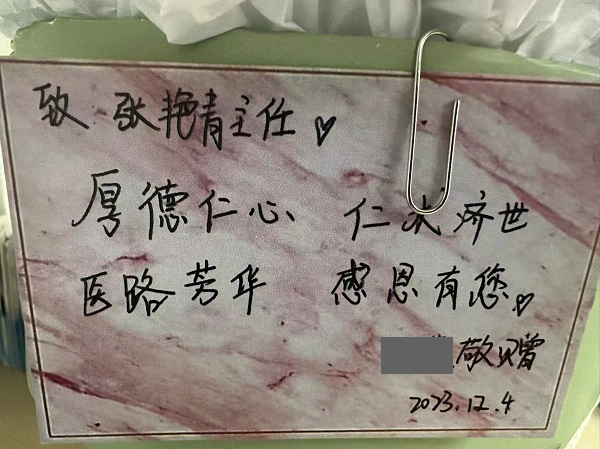 致 张艳青主任
厚德仁心、 仁术济世
医路芳华 感恩有您
敬赠
2023.12.4